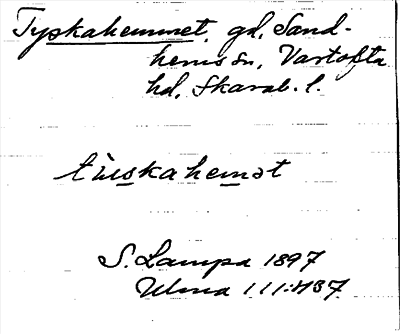 Tyskahemmet, gd, Sand-
hems sn, Vartofta
hd, Skarab. l.
tùskahemət
S. Lampa 1897
Ulma 111:437